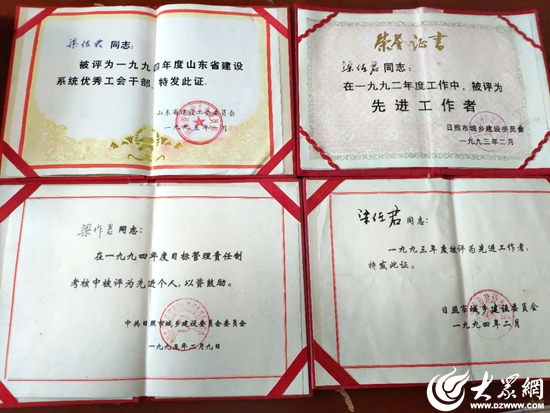 梁作君 同志：
被评为一九九四年度山东省建设
系统优秀工会干部，特发此证。
山东省建设工会委员会
一九九五年一月
荣誉证书
梁作君 同志：
在一九九二年度工作中，被评为
先进工作者
日照市城乡建设委员会
一九九三年二月
梁作君 同志：
在一九九四年度目标管理责任制
考核中被评为先进个人，以资鼓励。
中共日照市城乡建设委员会委员会
一九九五年二月九日
梁作君 同志：
一九九三年度被评为先进工作者，
特发此证。
日照市城乡建设委员会
一九九四年二月
大众網
WWW.DZWWW.COM